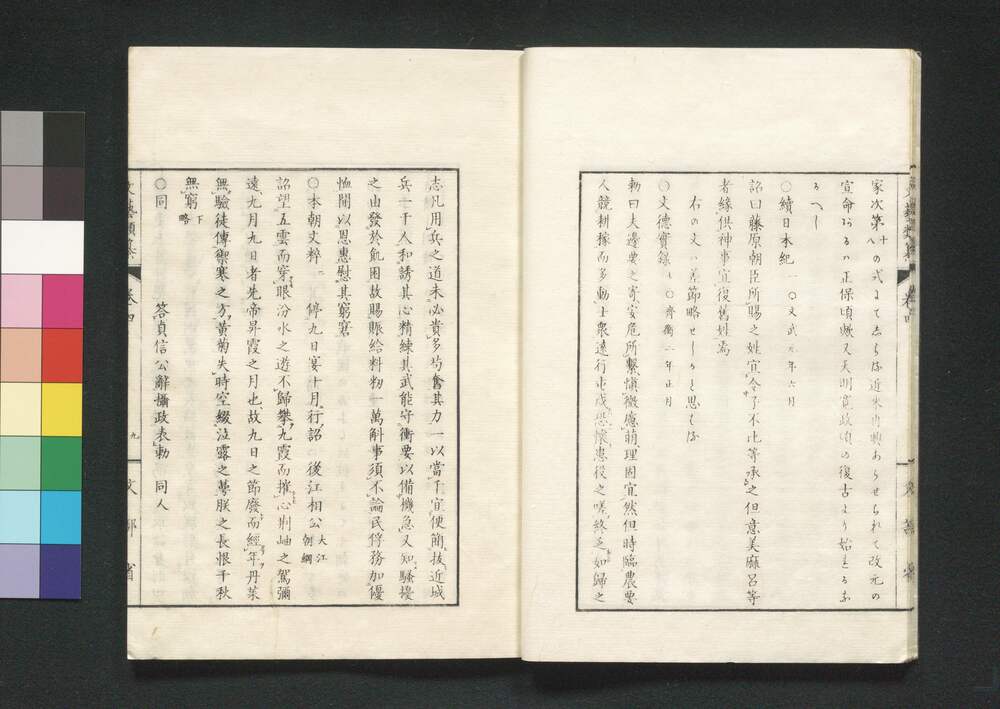 家次第十の式よて
宣命あるハ正保頃
るへし
○續日本紀一 ○文武元年六月
詔曰藤原朝臣所賜之姓宜令子不比等承之但意美麻呂等
者緣供神事宜復舊姓焉
右の文ハ節略せしゝと思しゝ
○文德實錄 ○齊衡二年正月
勅曰夫邊要之寄安危所繫愼微應萌理固宜然但時臨農要
人競耕稼而多動士衆遠行屯戍恐懷患役之嗟終乏如歸之
志凡用兵之道未必貴多苟奮其力一以當千宜使簡拔近城
兵一千人和誘其心精練其武能守衝要以備機急又知騷擾
之由發於飢困故賜賑給料籾一萬斛事須不論民俘務加優
恤開以恩惠慰其窮窘
○本朝文粹二 停九日宴十月行詔 後江相公大江朝綱
詔望五雲而穿眼汾水之遊不歸攀九霞而摧心荆岫之駕彌
遠九月九日者先帝昇霞之月也故九日之節廢而經年丹茱
無驗徒傳禦寒之方黃菊失時空綴泣露之蕚朕之長恨千秋
無窮下略
○同 答貞信公辭攝政表勅 同人
卷四
九
文部省